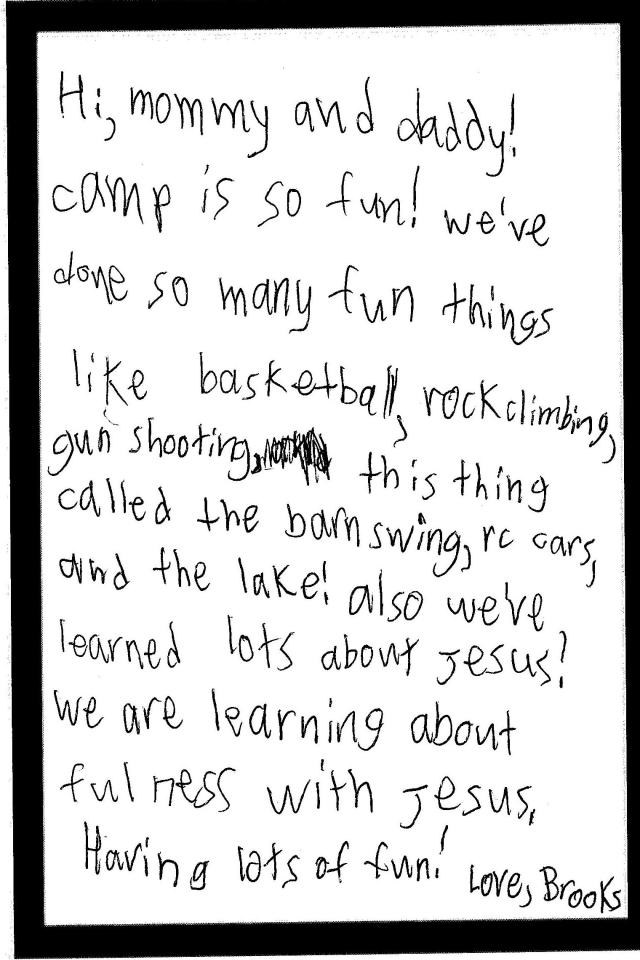 Hi, mommy and daddy!
camp is so fun! we've
done so many fun things
like basketball, rock climbing,
gun shooting, this thing
called the barn swing, rc cars,
and the lake! also we've
learned lots about Jesus!
we are learning about
fulness with Jesus.
Having lots of fun! Love, Brooks